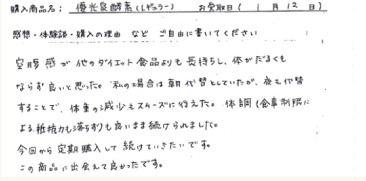 購入商品名: 優光泉酵素(レギュラー) お受取日( 1月 12日)
感想・体験談・購入の理由 など ご自由に書いてください
空腹感が他のダイエット食品よりも長持ちし、体がだるくも
ならず良いと思った。私の場合は朝代替としていたが、夜も代替
することで、体重の減少もスムーズに行えた。体調(食事制限に
よる抵抗力も落ちず)も良いまま続けられました。
今回から定期購入して続けていきたいです。
この商品に出会えて良かったです。